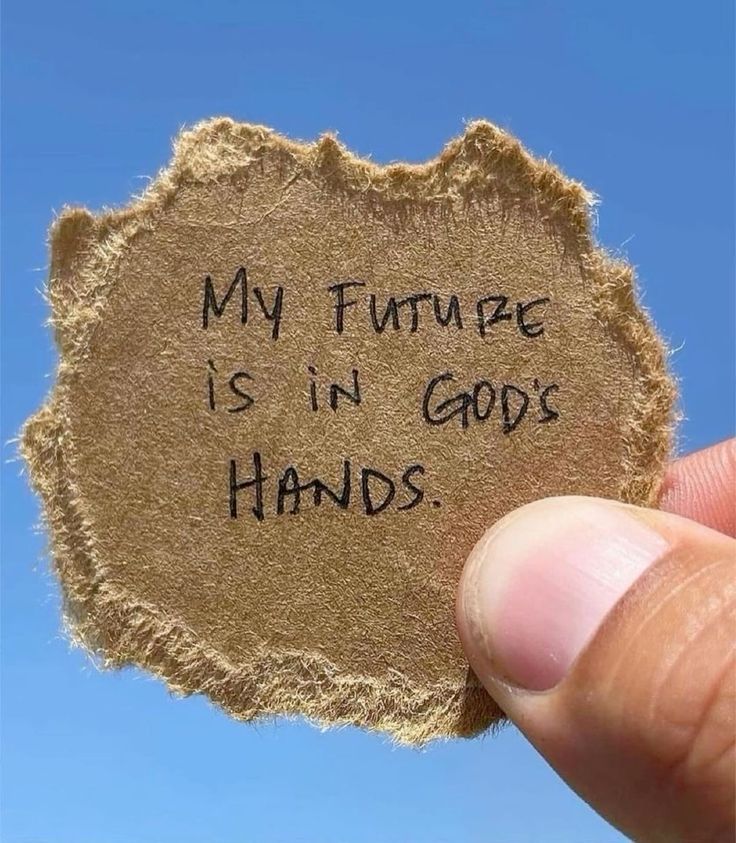 My FUTURE
is iN GOD's
HANDS.